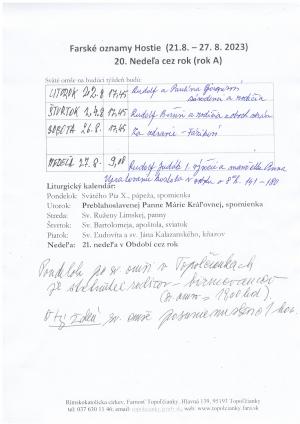 Farské oznamy Hostie (21.8. – 27. 8. 2023)
20. Nedeľa cez rok (rok A)
Sväté omše na budúci týždeň budú:
UTOROK 22.8 17,45 Rudolf a Paulína
súrodenci a rodičia
ŠTVRTOK 24.8 17,45 Rudolf a rodičia z oboch strán
SOBOTA 26.8. 17,45 Za zdravie
NEDEĽA 27.8. 9,00 Rudolf
Liturgický kalendár:
Pondelok: Svätého Pia X., pápeža, spomienka
Utorok: Preblahoslavenej Panne Márie Kráľovnej, spomienka
Streda: Sv. Ruženy Limskej, panny
Štvrtok: Sv. Bartolomeja, apoštola, sviatok
Piatok: Sv. Ľudovíta a sv. Jána Kalazanského, kňazov
Nedeľa: 21. nedeľa v Období cez rok
Pondelok po sv. omši v Topoľčiankach
je stretnutie rodičov – birmovancov
(sv. omša – 18:00 hod).
O týždeň sv. omše posunuté o 1 hod.
Rímskokatolícka cirkev, Farnosť Topoľčianky, Hlavná 139, 95193 Topoľčianky
tel: 037 630 11 46; email: web: www.topolcianky.fara.sk